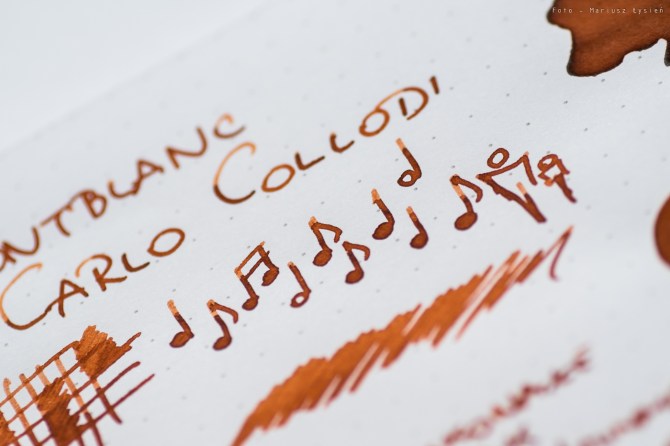 foto - Mariusz Łysień
ONTBLANC
CARLO COLLODI